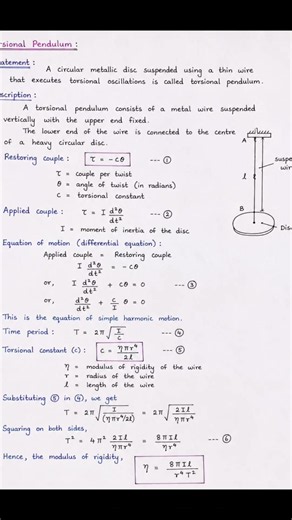 rsional Pendulum :
atement : A circular metallic disc suspended using a thin wire
that executes torsional oscillations is called torsional pendulum.
scription :
A torsional pendulum consists of a metal wire suspended
vertically with the upper end fixed.
The lower end of the wire is connected to the centre
of a heavy circular disc.
A
suspe
wire
l
B
Disc
Restoring couple : τ = -cθ --- ①
τ = couple per twist
θ = angle of twist (in radians)
c = torsional constant
Applied couple : τ = I d²θ/dt² --- ②
I = moment of inertia of the disc
Equation of motion (differential equation) :
Applied couple = Restoring couple
I d²θ/dt² = -cθ
or, I d²θ/dt² + cθ = 0 --- ③
or, d²θ/dt² + c/I θ = 0
This is the equation of simple harmonic motion.
Time period : T = 2π√(I/c) --- ④
Torsional constant (c) : c = ηπr⁴/2l --- ⑤
η = modulus of rigidity of the wire
r = radius of the wire
l = length of the wire
Substituting ⑤ in ④, we get
T = 2π√(I/(ηπr⁴/2l)) = 2π√(2Il/ηπr⁴)
Squaring on both sides,
T² = 4π² 2Il/ηπr⁴ = 8πIl/ηr⁴ --- ⑥
Hence, the modulus of rigidity, η = 8πIl/r⁴T²